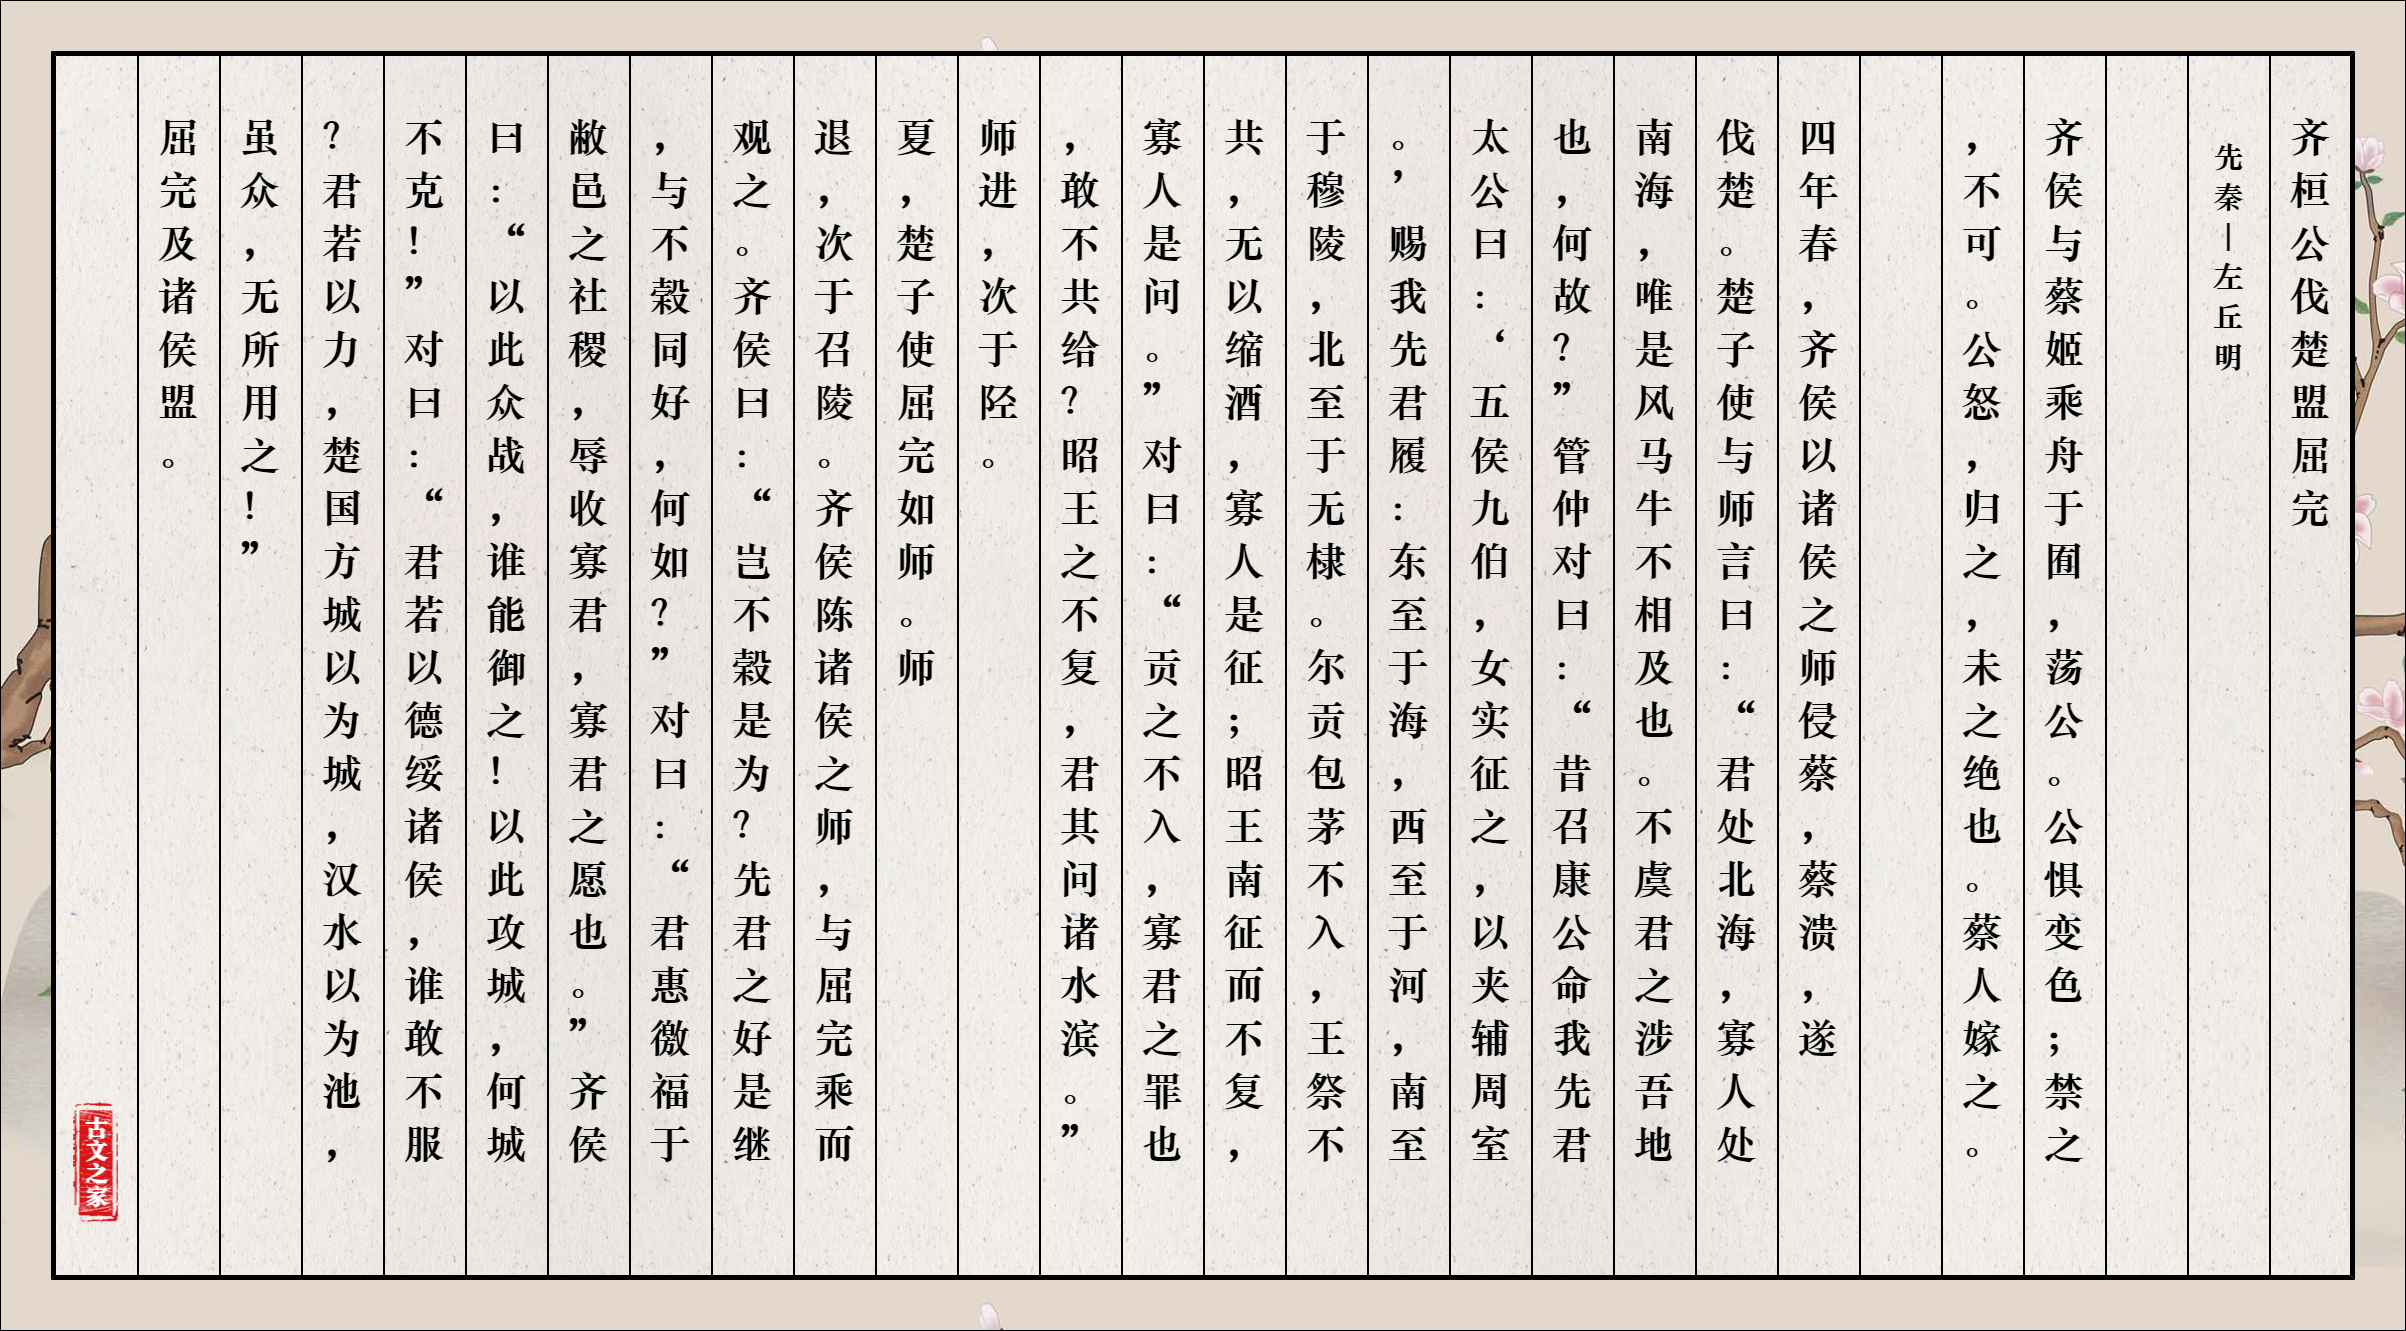 齐桓公伐楚盟屈完
先秦—左丘明
齐侯与蔡姬乘舟于囿，荡公。公惧变色；禁之
，不可。公怒，归之，未之绝也。蔡人嫁之。
四年春，齐侯以诸侯之师侵蔡，蔡溃，遂
伐楚。楚子使与师言曰：“君处北海，寡人处
南海，唯是风马牛不相及也。不虞君之涉吾地
也，何故？”管仲对曰：“昔召康公命我先君
太公曰：‘五侯九伯，女实征之，以夹辅周室
。’赐我先君履：东至于海，西至于河，南至
于穆陵，北至于无棣。尔贡包茅不入，王祭不
共，无以缩酒，寡人是征；昭王南征而不复，
寡人是问。”对曰：“贡之不入，寡君之罪也
，敢不共给？昭王之不复，君其问诸水滨。”
师进，次于陉。
夏，楚子使屈完如师。师
退，次于召陵。齐侯陈诸侯之师，与屈完乘而
观之。齐侯曰：“岂不榖是为？先君之好是继
，与不榖同好，何如？”对曰：“君惠徼福于
敝邑之社稷，辱收寡君，寡君之愿也。”齐侯
曰：“以此众战，谁能御之！以此攻城，何城
不克！”对曰：“君若以德绥诸侯，谁敢不服
？君若以力，楚国方城以为城，汉水以为池，
虽众，无所用之！”
屈完及诸侯盟。
古文之家